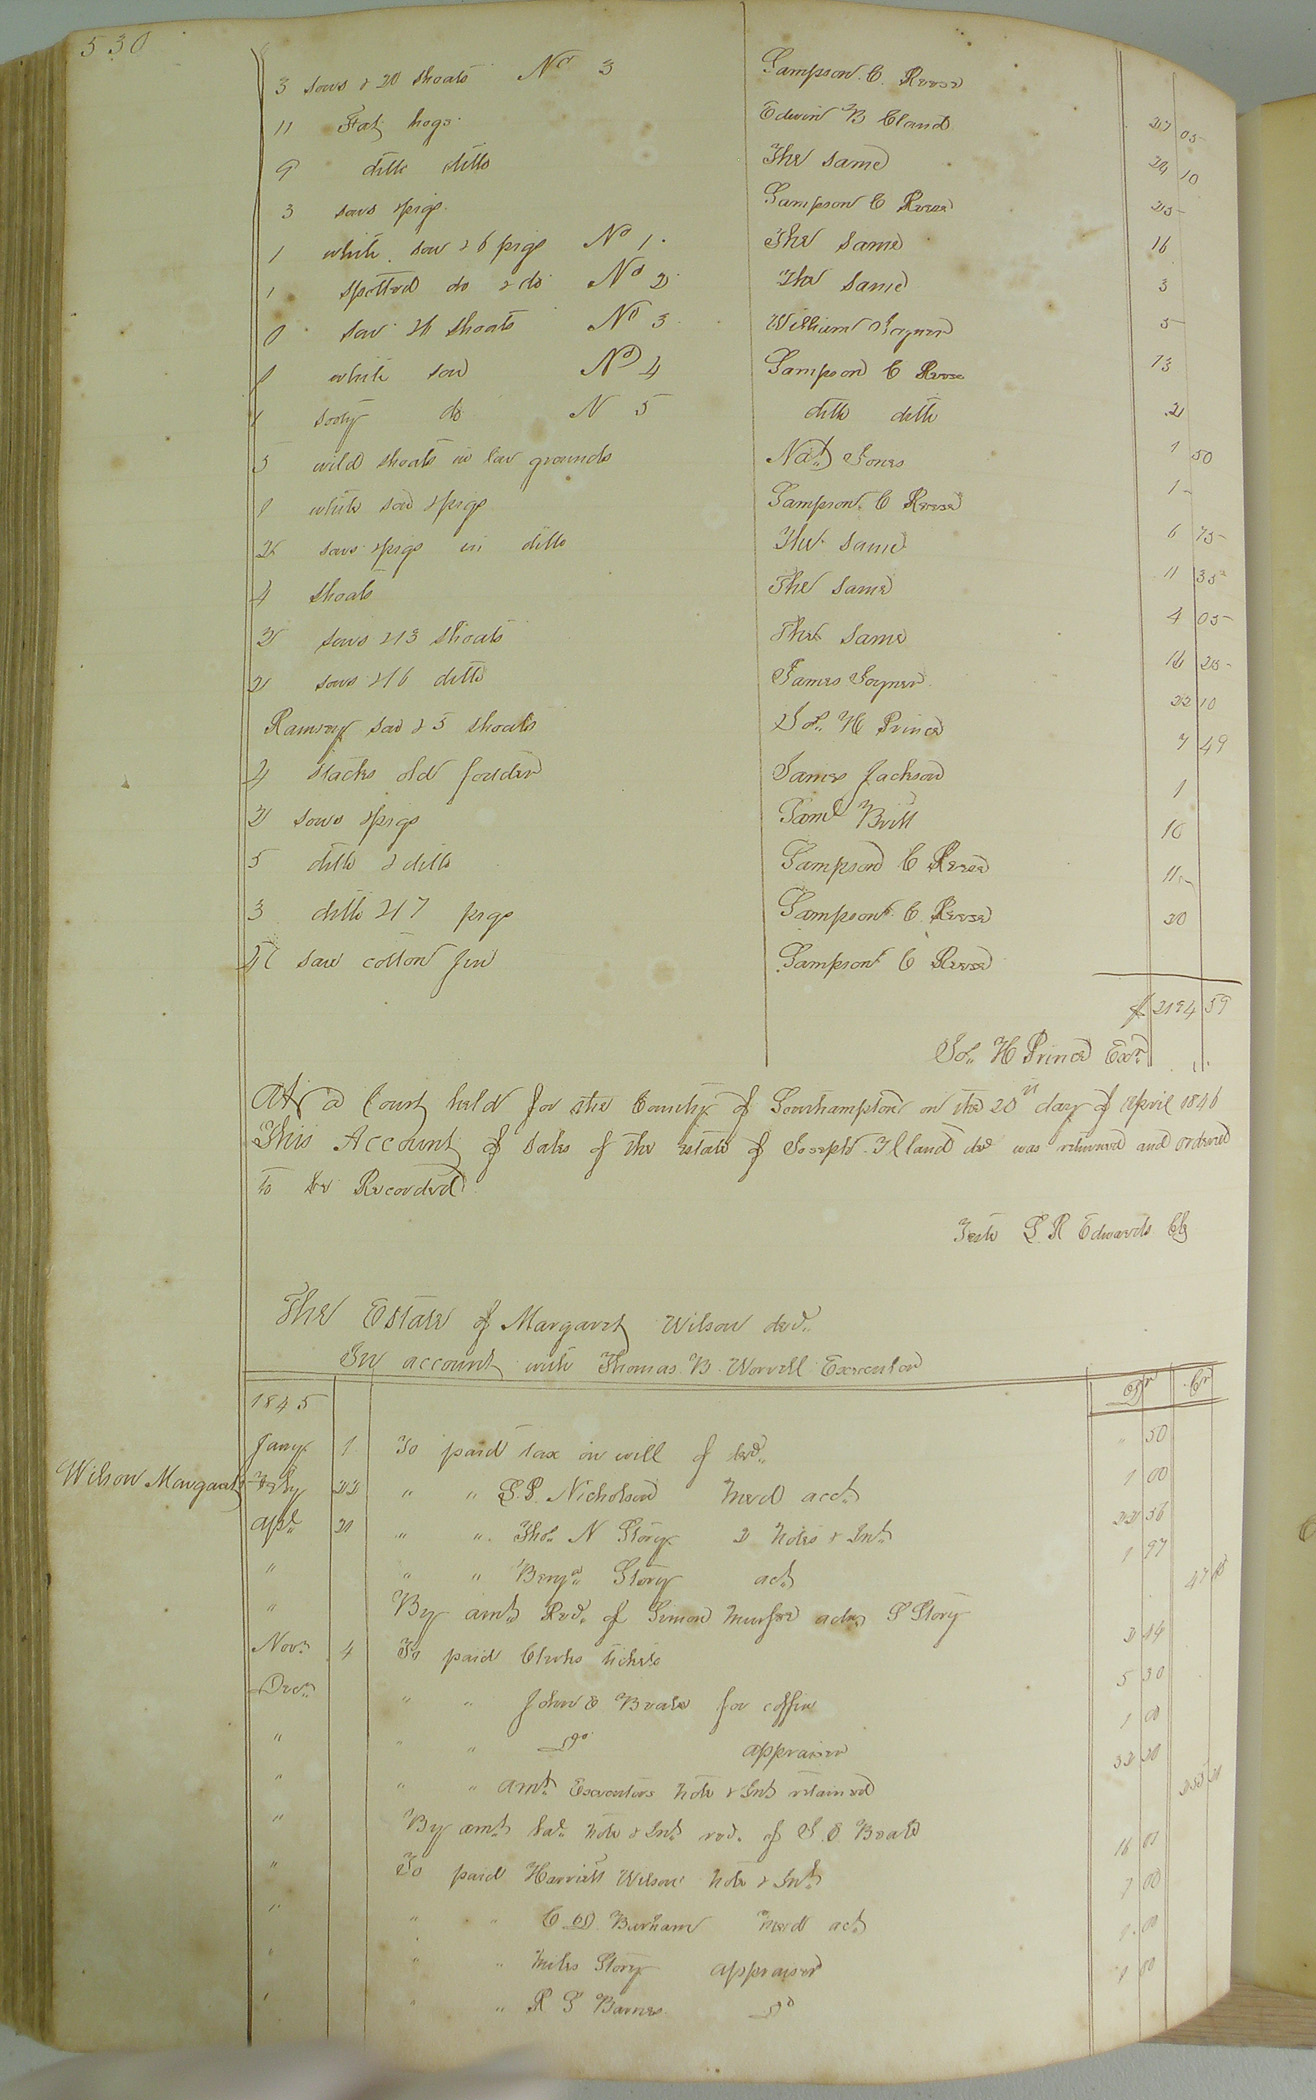 530
3 sows & 20 shoats No 3 Sampson C Reese
11 Fat hogs Edwin B Claud 27 05
9 ditto ditto The same 24 10
3 sows & pigs Sampson C Reese 25
1 white sow & 6 pigs No 1 The same 16
1 spotted do & do No 2 The same 3
1 sow & 6 shoats No 3 William Joyner 5
1 white sow No 4 Sampson C Reese 13
1 sooty do N 5 ditto ditto 2
5 wild shoats in low grounds Nat Jones 1 50
1 white sow & pigs Sampson C Reese 1
2 sows & pigs in ditto The same 6 75
4 shoats The same 11 35
2 sows & 13 shoats The same 4 05
2 sows & 16 ditto James Joyner 16 25
Ramsey sow & 5 shoats Jos. H Prince 22 10
4 stacks old fodder James Jackson 7 49
2 sows & pigs Saml Britt 1
5 ditto & ditto Sampson C Reese 16
3 ditto & 17 pigs Sampson C Reese 11
saw cotton Jin Sampson C Reese 20
$ 2194 59
Jos. H Prince Exr
At a Court held for the County of Southampton on the 20th day of April 1846
This Account of Sales of the estate of Joseph T Claud decd was returned and ordered
to be Recorded
Teste L. R Edwards Clk
The Estate of Margaret Wilson decd.
In account with Thomas B Worrell Executor
1845 Dr Cr
Jany 1 To paid tax on will of decd. " 50
Wilson Margaret
Feby 22 " " L. P. Nicholson Merd acct 1 00
Apl 21 " " Thos N Story 2 Notes & Int 22 56
" " " Benjn Story act 1 97
" By amt Recd. of Simon Murfee admr S Story 47
Novr 4 To paid Clerks tickets 2 44
Decr " " John E Beale for coffin 5 30
" " " Do appraiser 1 00
" " " amt Executors note & Int retained 32 20
" By amt bal. note & Int recd. of J. E Beale
" To paid Harriett Wilson note & Int 16 01
" " " C D. Barham Merd act 7 00
" " " Miles Story appraiser 1 00
" " " R S Barnes Do 1 00